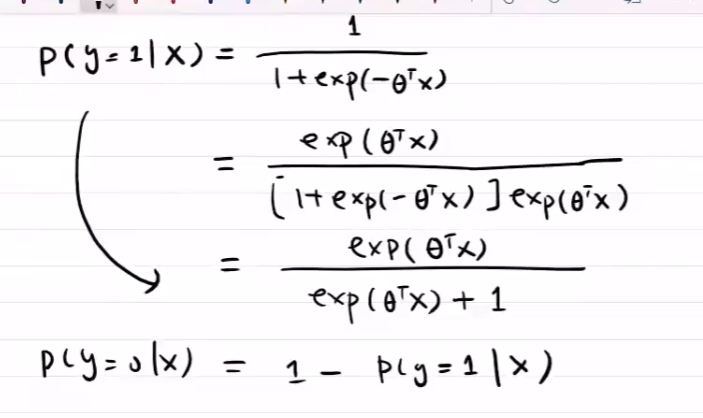 p(y=1|x) = 1 / 1+exp(-θᵀx)
= exp(θᵀx) / [1+exp(-θᵀx)]exp(θᵀx)
= exp(θᵀx) / exp(θᵀx) + 1
p(y=0|x) = 1 - p(y=1|x)